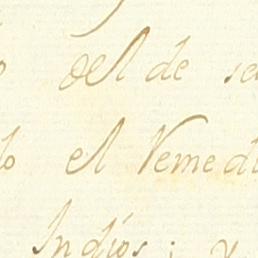 del de se
do el Remedi
Indios; y